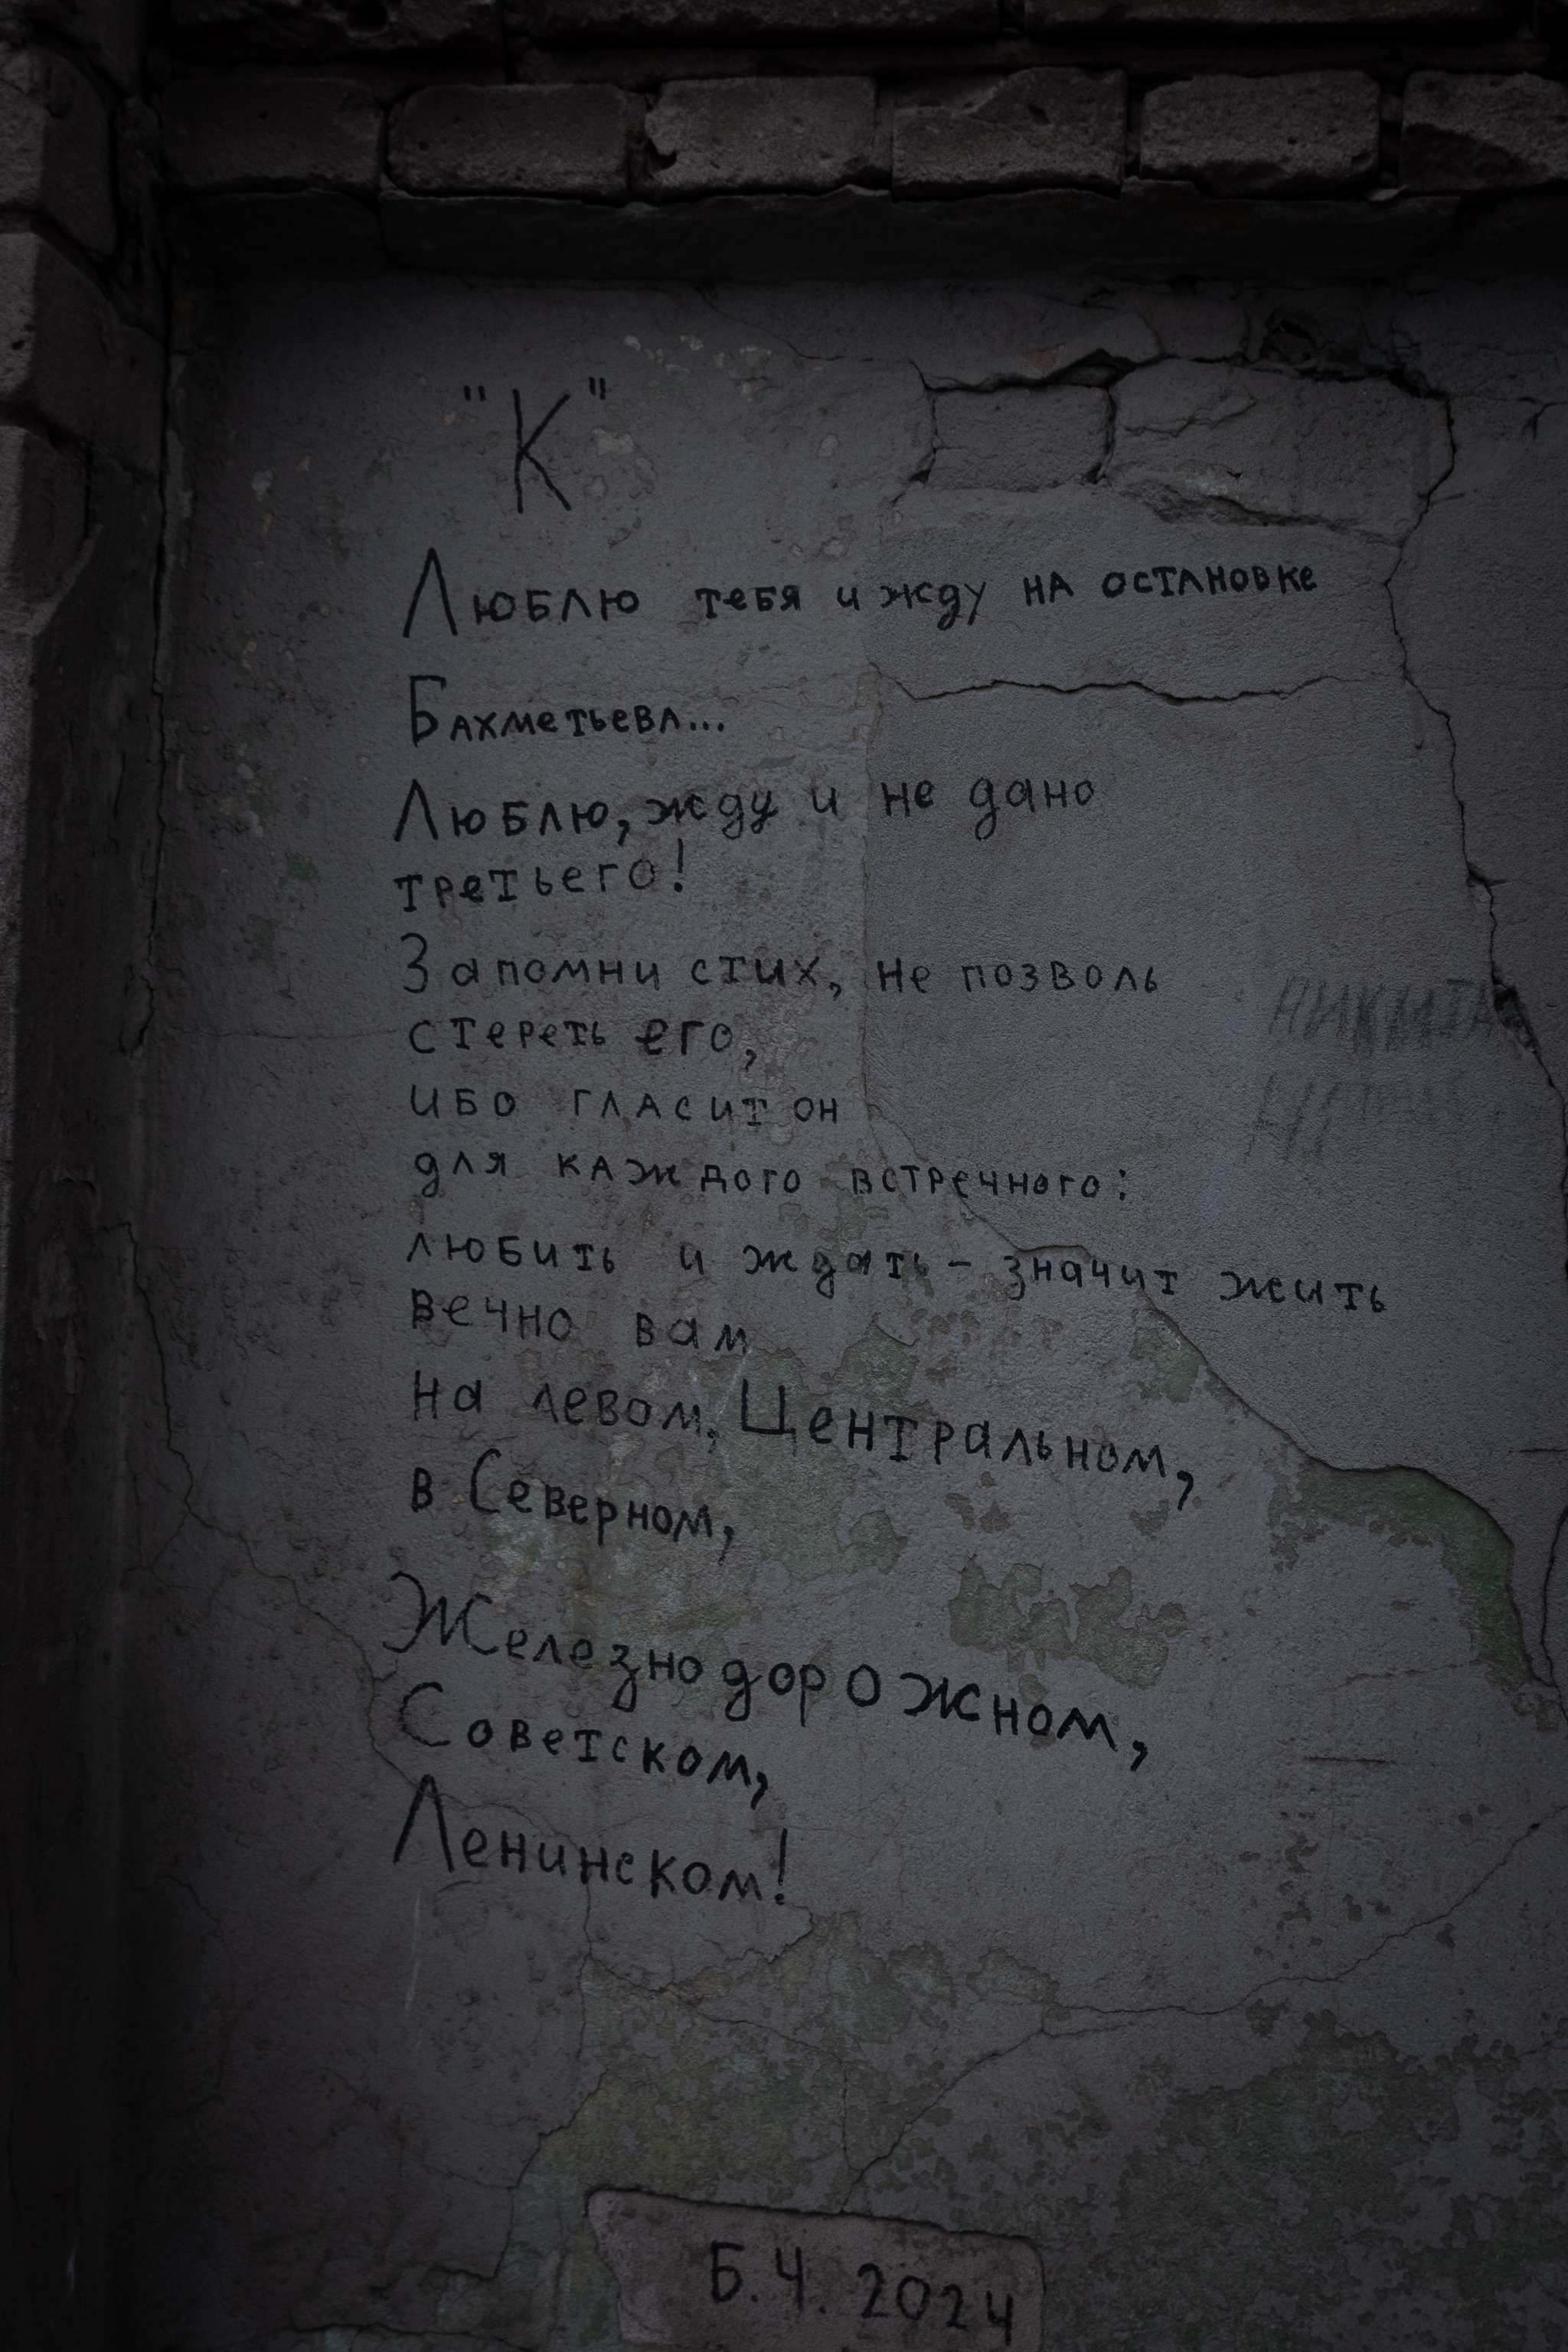 "К"
Люблю тебя и жду на остановке
Бахметьева...
Люблю, жду и не дано
третьего!
Запомни стих, не позволь
стереть его,
ибо гласит он
для каждого встречного:
любить и ждать – значит жить
вечно вам
на левом, Центральном,
в Северном,
Железнодорожном,
Советском,
Ленинском!
Б.Ч. 2024